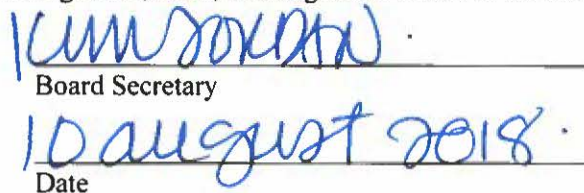 KIM JORDAN.
Board Secretary
10 august 2018.
Date